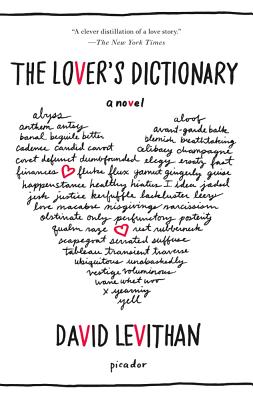 "A clever distillation of a love story."
—The New York Times
THE LOVER'S DICTIONARY
a novel
abyss aloof
anthem antsy avant-garde balk
banal beguile better blemish breathtaking
cadence candid cavort celibacy champagne
covet defunct dumbfounded elegy ersatz fast
finances fluke flux gamut gingerly guise
happenstance healthy hiatus I idea jaded
jerk justice kerfuffle lackluster leery
love macabre misgivings narcissism
obstinate only perfunctory posterity
qualm raze rest rubberneck
scapegoat serrated suffuse
tableau transient traverse
ubiquitous unabashedly
vestige voluminous
wane whet woo
x yearning
yell
DAVID LEVITHAN
picador